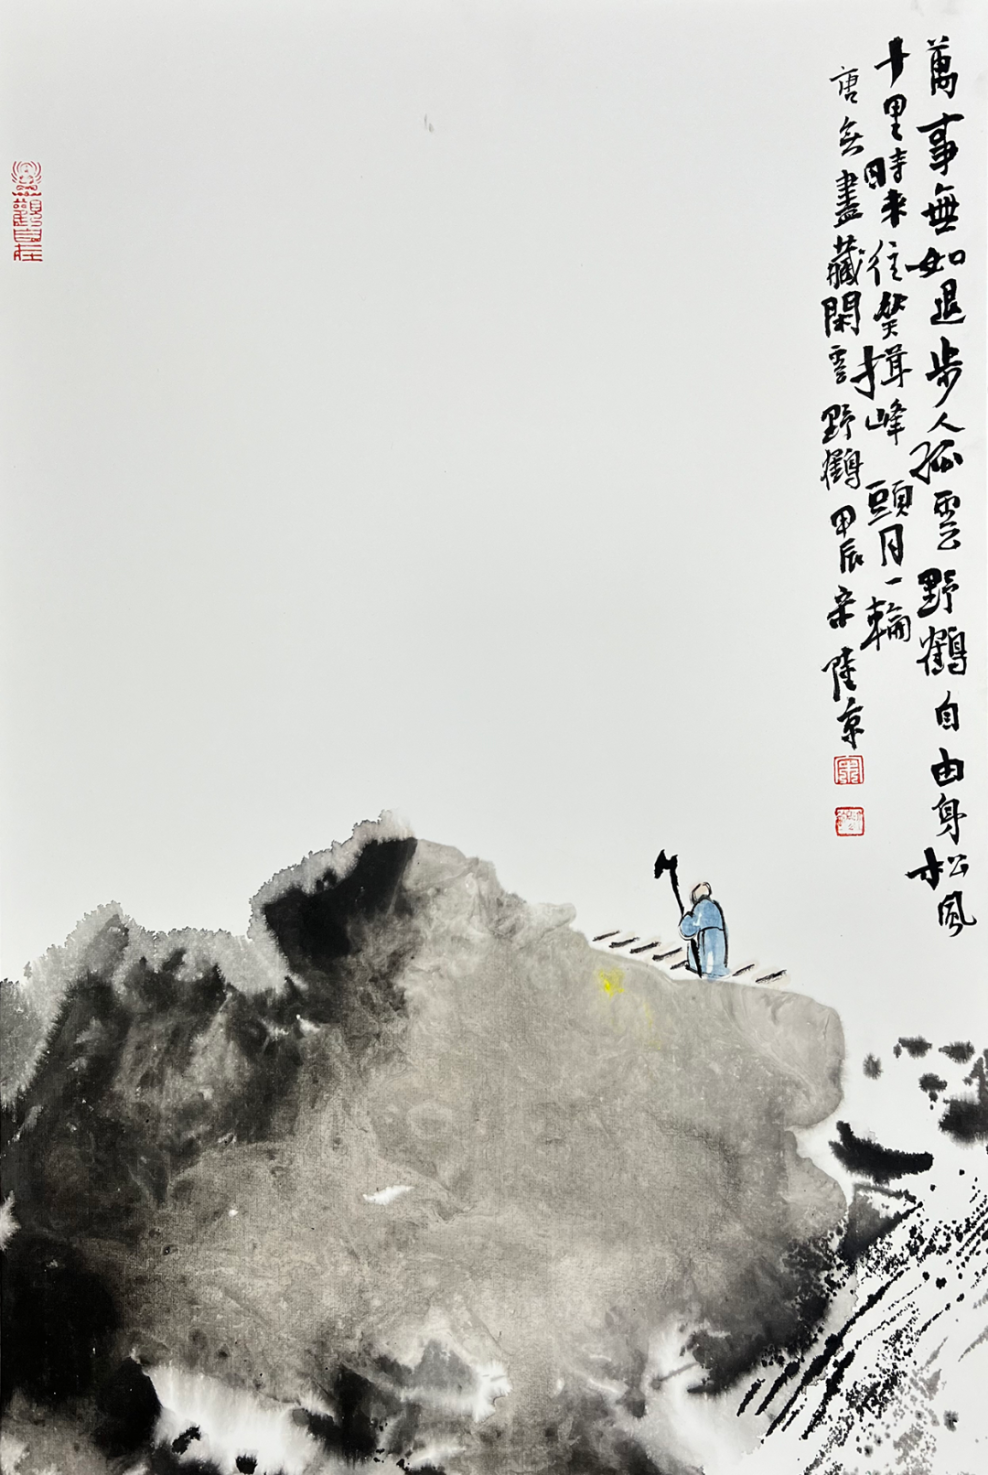 萬事無如退步人孤雲野鶴自由身松風
十里時来往笑揖峰頭月一輪
唐无盡藏閑雲野鶴甲辰宋陸京